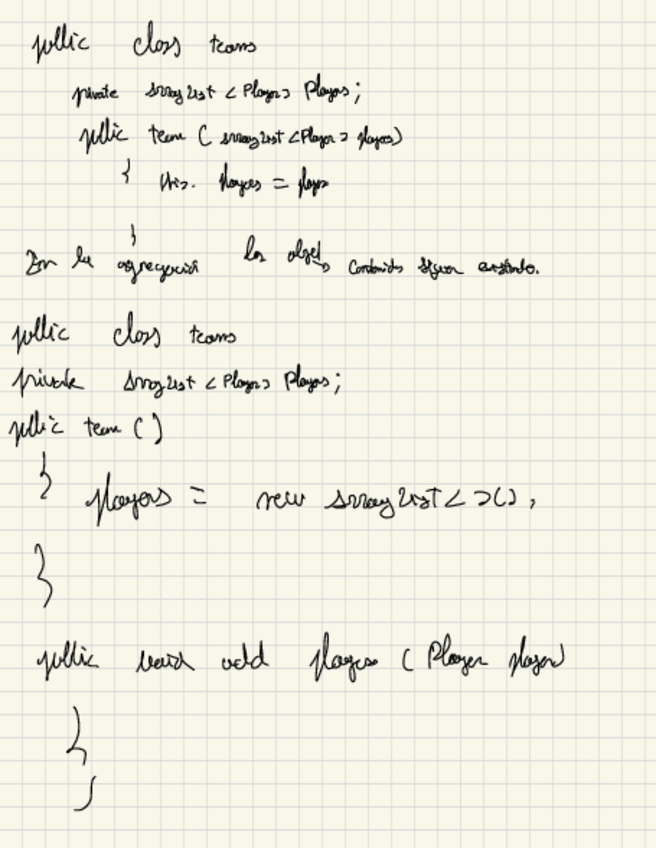 public class teams
private ArrayList <Player> Players;
public team ( ArrayList <Player> players)
{ this. players = players
}
En la agregación los objet → contenidos siguen existiendo.
public class teams
private ArrayList <Player> Players;
public team ( )
{ players = new ArrayList < >();
}
public void add players ( Player player)
{
}